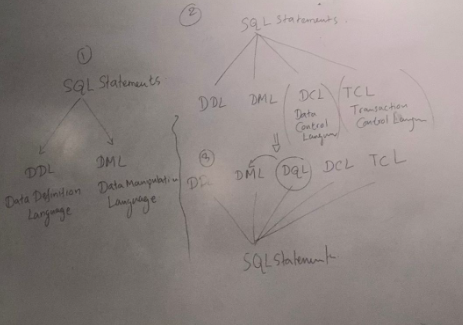 ①
SQL Statements
DDL
Data Definition
Language
DML
Data Manipulation
Language
②
SQL Statements
DDL DML DCL TCL
Data
Control
Transaction
Control
DML DQL DCL TCL
SQL Statement